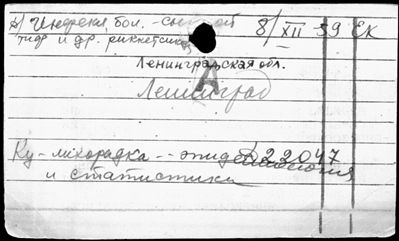 А) Инфекц. бол. - сыпной 8/XII 59 ЕК
тиф и др. риккетсиозы
Ленинградская обл.
А
Ленинград
Б22047
Ку-лихорадка -- эпидемиология
и статистика